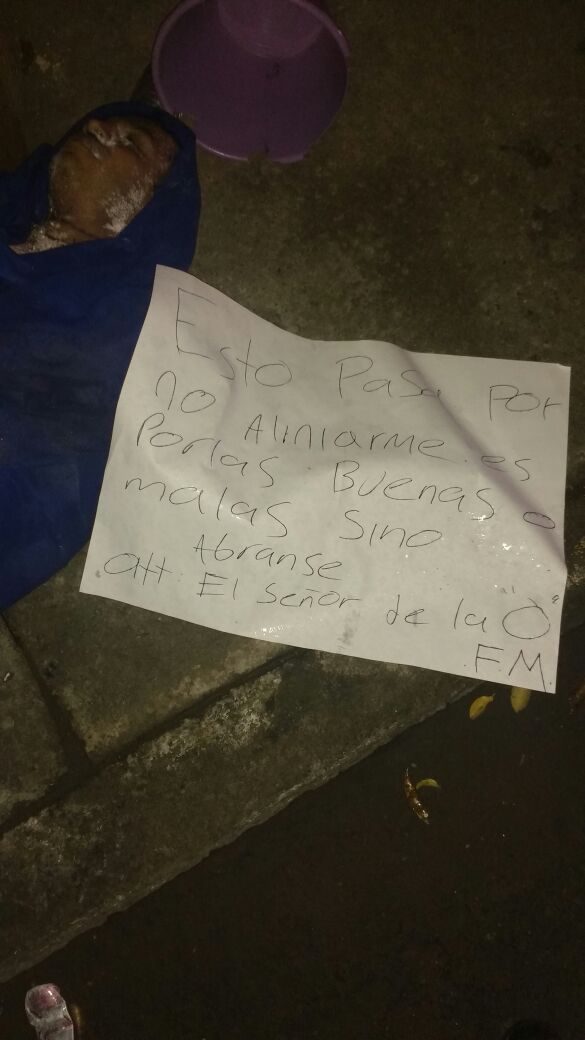 Esto Pasa por
no Aliniarme. es
Porlas Buenas o
malas sino
Abranse
att: El señor de la "O"
F.M.